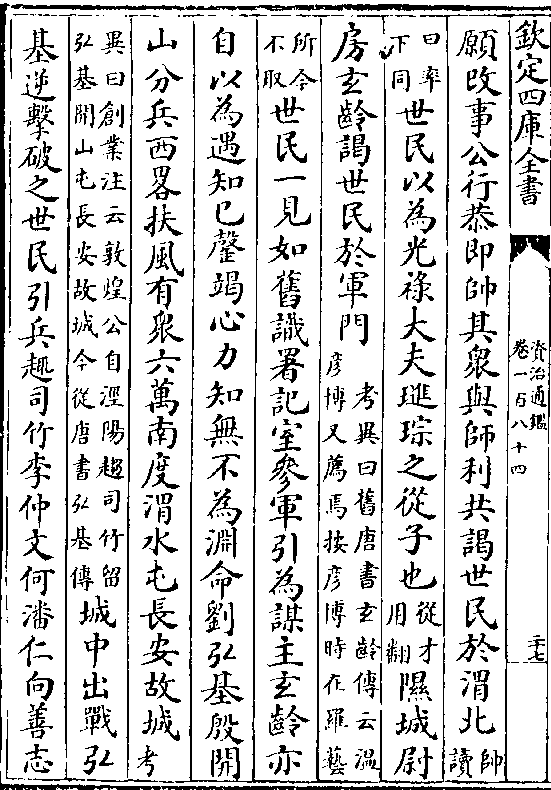 欽定四庫全書
資治通鑑
卷一百八十四
三十七
願改事公行恭即帥其衆與師利共謁世民於渭北帥讀
曰率下同世民以為光祿大夫璡琮之從子也從才用翻隰城尉
房玄齡謁世民於軍門考異曰舊唐書玄齡傳云溫彦博又薦焉按彦博時在羅藝
所今不取世民一見如舊識署記室參軍引為謀主玄齡亦
自以為遇知己罄竭心力知無不為淵命劉弘基殷開
山分兵西畧扶風有衆六萬南度渭水屯長安故城考
異曰創業注云敦煌公自涇陽趨司竹留弘基開山屯長安故城今從唐書弘基傳城中出戰弘
基逆擊破之世民引兵趣司竹李仲文何潘仁向善志